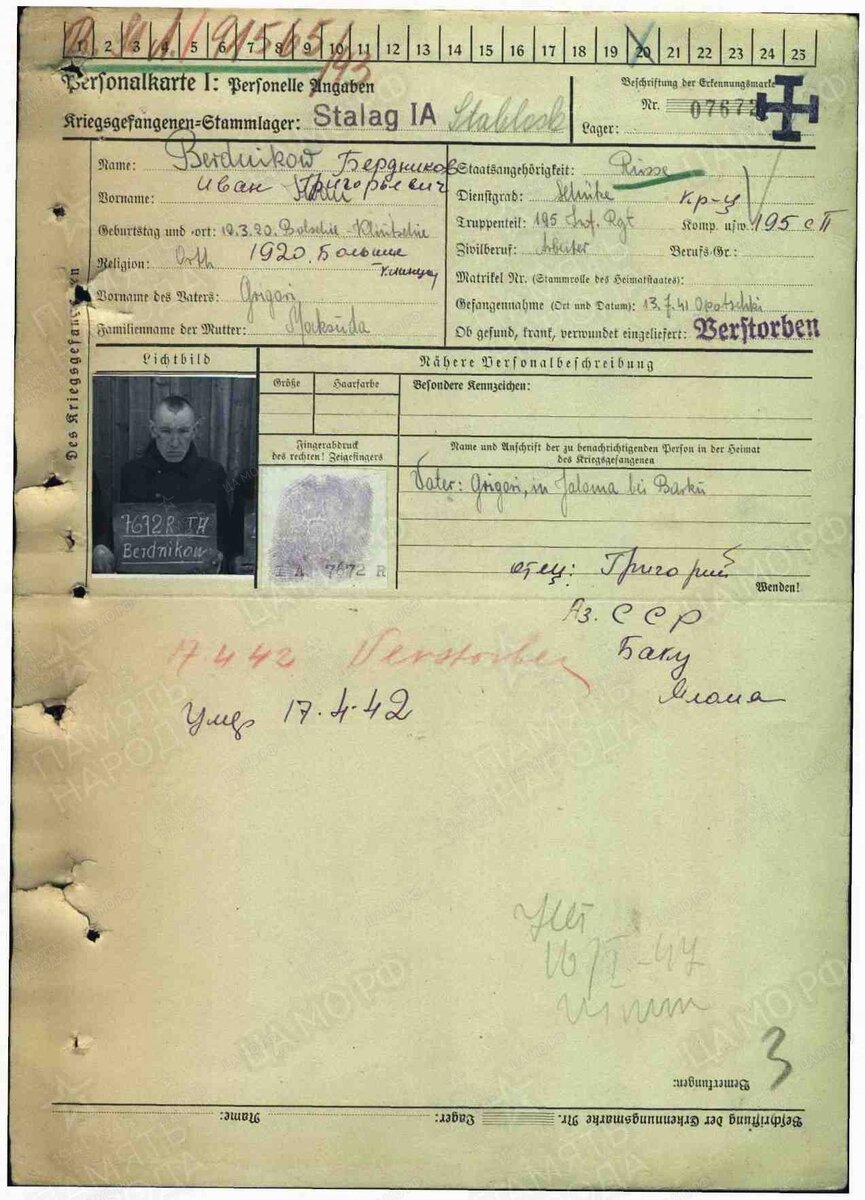 1 2 3 4 5 6 7 8 9 10 11 12 13 14 15 16 17 18 19 20 21 22 23 24 25
Personalkarte I: Personelle Angaben
Kriegsgefangenen-Stammlager: Stalag IA Stablack
Beschriftung der Erkennungsmarke
Nr. 07672
Lager:
Des Kriegsgefangenen
Name: Berdnikow Бердников
Vorname: Иван Григорьевич
Geburtstag und -ort: 12.3.20. Bolschie-Klintschie
1920. Больше
Religion: Orth
Vorname des Vaters: Grigori
Familienname der Mutter: Maksuda
Staatsangehörigkeit: Russe
Dienstgrad: Schütze кр-ц
Truppenteil: 195 Inf. Rgt Komp. usw. 195 сп
Zivilberuf: Arbeiter Berufs-Gr.:
Matrikel Nr. (Stammrolle des Heimatstaates):
Gefangennahme (Ort und Datum): 13.7.41 Opotschki
Ob gesund, krank, verwundet eingeliefert: Verstorben
Lichtbild
7672 R. ST. IA
Berdnikow
Nähere Personalbeschreibung
Größe Haarfarbe
Besondere Kennzeichen:
Fingerabdruck
des rechten! Zeigefingers
I A 7672 R
Name und Anschrift der zu benachrichtigenden Person in der Heimat
des Kriegsgefangenen
Vater: Grigori, in Jaloma bei Barku
отец: Григорий
Wenden!
Аз. ССР
Баку
Ялома
17.4.42 Verstorben
Умер 17.4.42
16/I-47
3
Bemerkungen:
Beschriftung der Erkennungsmarke Nr. Lager: Name: